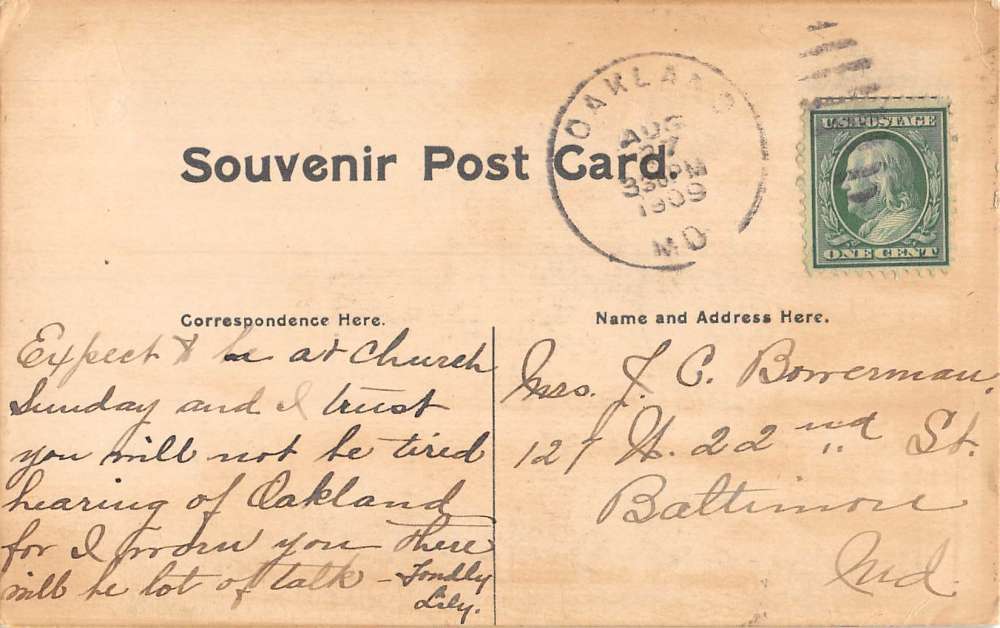 OAKLAND
AUG
27
330PM
1909
MD
U.S. POSTAGE
ONE CENT
Souvenir Post Card.
Correspondence Here.
Name and Address Here.
Expect to be at church
Sunday and I trust
you will not be tired
hearing of Oakland
for I warn you there
will be lot of talk - Fondly
Lily.
Mrs. J. C. Bowerman,
127 W. 22nd St.
Baltimore
Md.